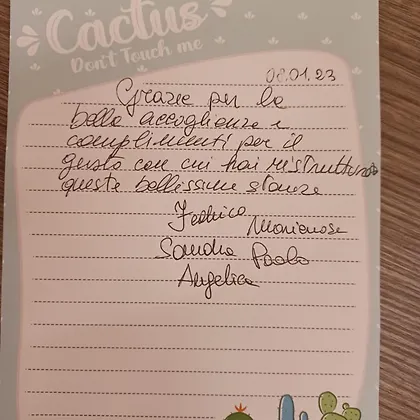 Cactus
Don't Touch me
08.01.23
Grazie per la
bella accoglienza e
complimenti per il
gusto con cui hai ristrutturato
queste bellissime stanze
Federico
Sandra Paolo
Angelica